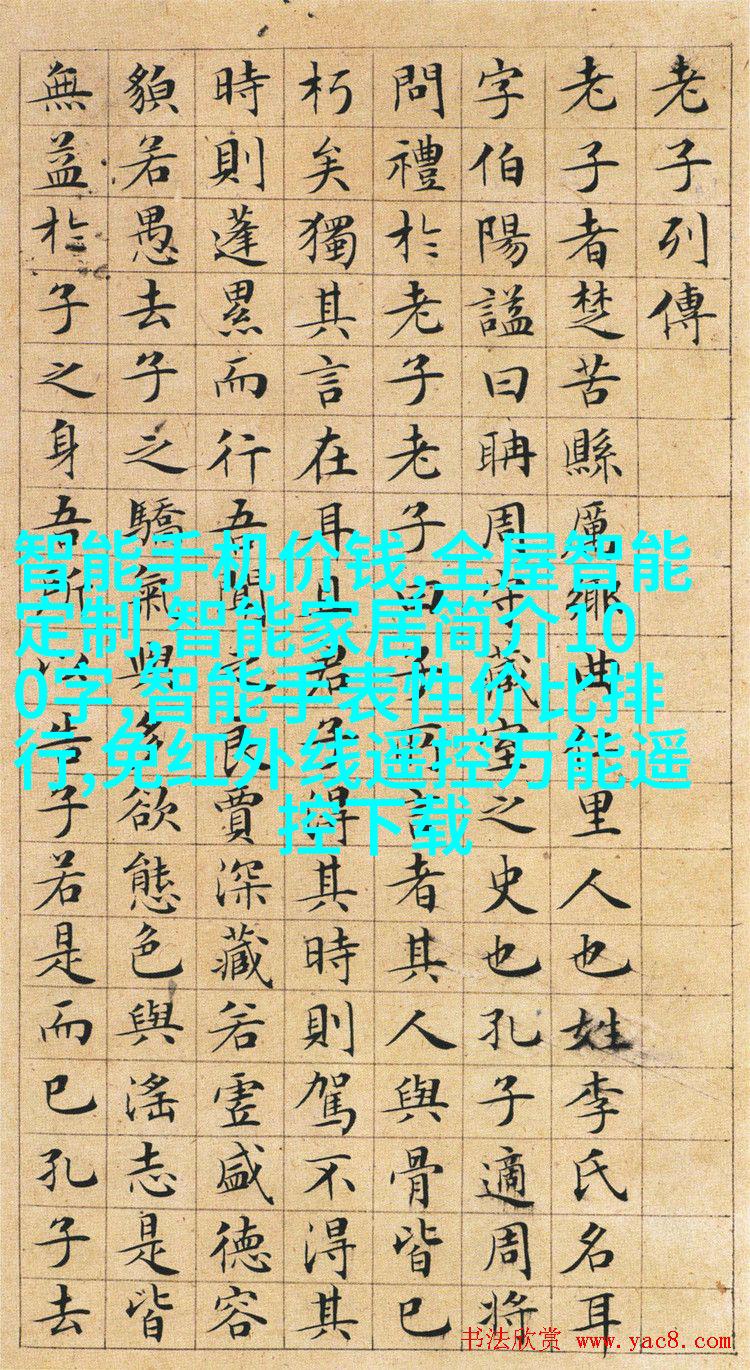 老子列傳
老子者楚苦縣厲鄉曲仁里人也姓李氏名耳
字伯陽謚曰耼周守藏室之史也孔子適周將
問禮於老子老子曰子所言者其人與骨皆已
朽矣獨其言在耳且君子得其時則駕不得其
時則蓬累而行吾聞之良賈深藏若虛盛德容
䫉若愚去子之驕氣與多欲態色與滛志是皆
無益於子之身吾所以告子若是而已孔子去
智能手机价钱,全屋智能
定制,智能家居简介10
0字,智能手表性价比排
行,免红外线遥控万能遥
控下载
书法欣赏 www.yac8.com